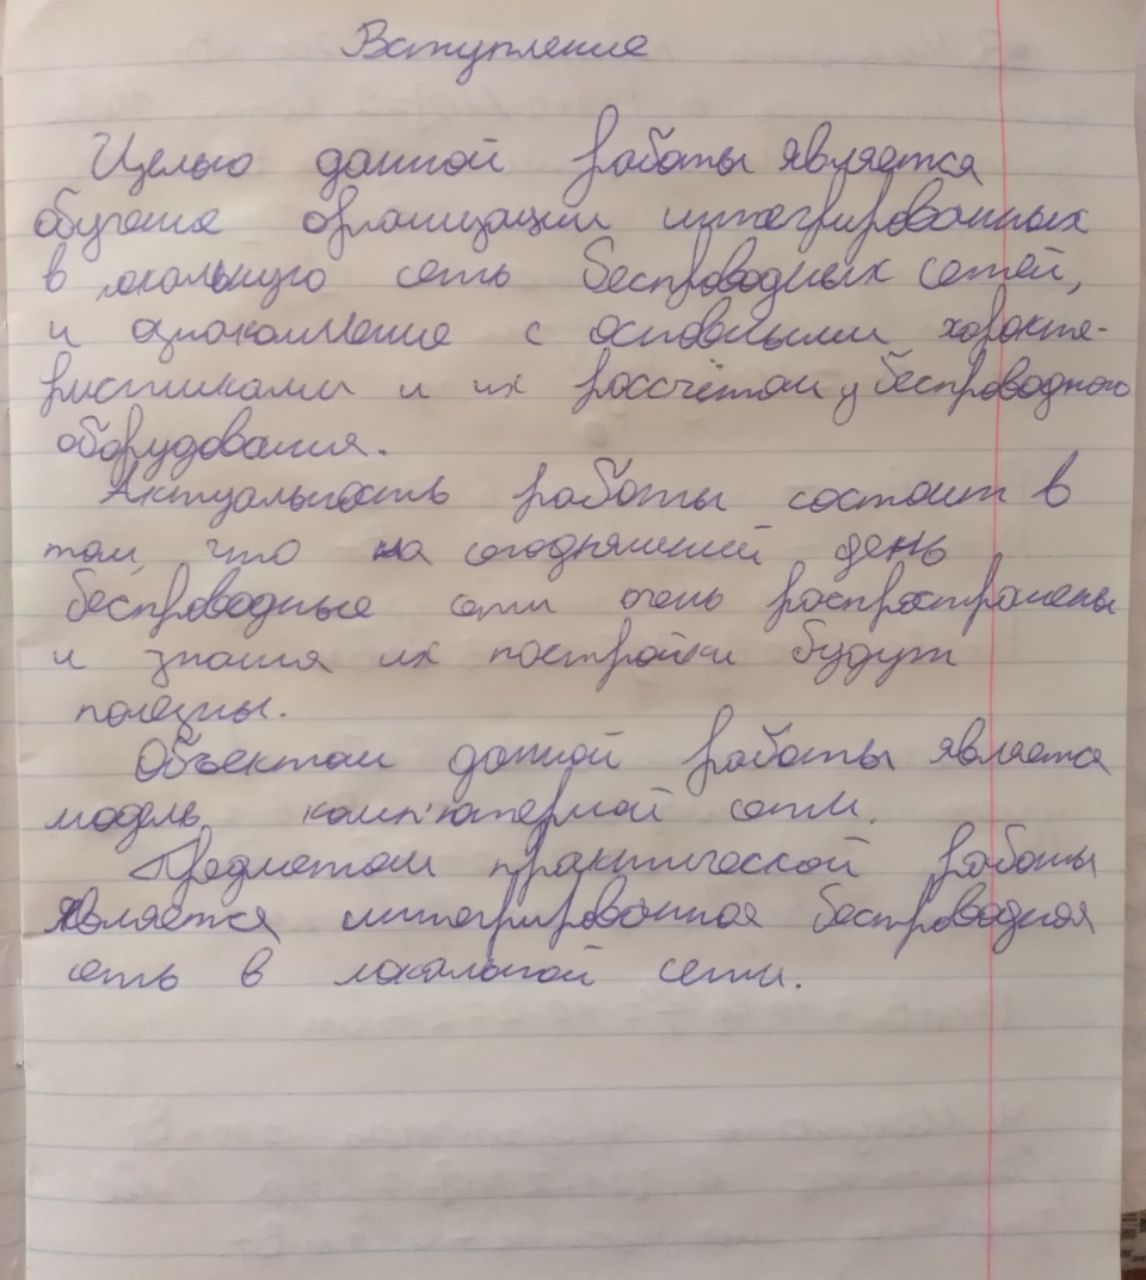 Вступление
Целью данной работы является
обучение организации интегрированных
в локальную сеть беспроводных сетей,
и ознакомление с основными характе-
ристиками и их рассчётом у беспроводного
оборудования.
Актуальность работы состоит в
том, что на сегодняшний день
беспроводные сети очень распространены
и знания их постройки будут
полезны.
Объектом данной работы является
модель комп'ютерной сети.
Предметом практической работы
является интегрированная беспроводная
сеть в локальной сети.